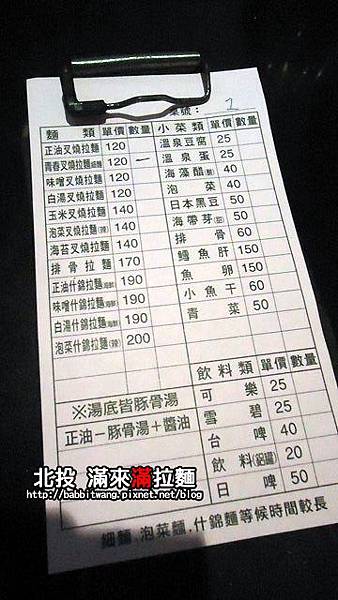 桌號： 1
麵類 單價 數量 小菜類 單價 數量
正油叉燒拉麵 120 溫泉豆腐 25
青春叉燒拉麵(細麵) 120 一 溫泉蛋 25
味噌叉燒拉麵 120 海藻醋(酸) 40
白湯叉燒拉麵 120 泡菜 40
玉米叉燒拉麵 140 日本黑豆 50
泡菜叉燒拉麵(辣) 140 海帶芽 50
海苔叉燒拉麵 140 排骨 60
排骨拉麵 170 鱈魚肝 150
正油什錦拉麵(海鮮) 190 魚卵 150
味噌什錦拉麵(海鮮) 190 小魚干 60
白湯什錦拉麵(海鮮) 190 青菜 50
泡菜什錦拉麵(辣) 200
飲料類 單價 數量
可樂 25
※湯底皆豚骨湯 雪碧 25
正油－豚骨湯＋醬油 台啤 40
飲料(鋁罐) 20
日啤 50
北投 滿來滿拉麵
http://babbitwang.pixnet.net/blog
細麵.泡菜麵.什錦麵等候時間較長